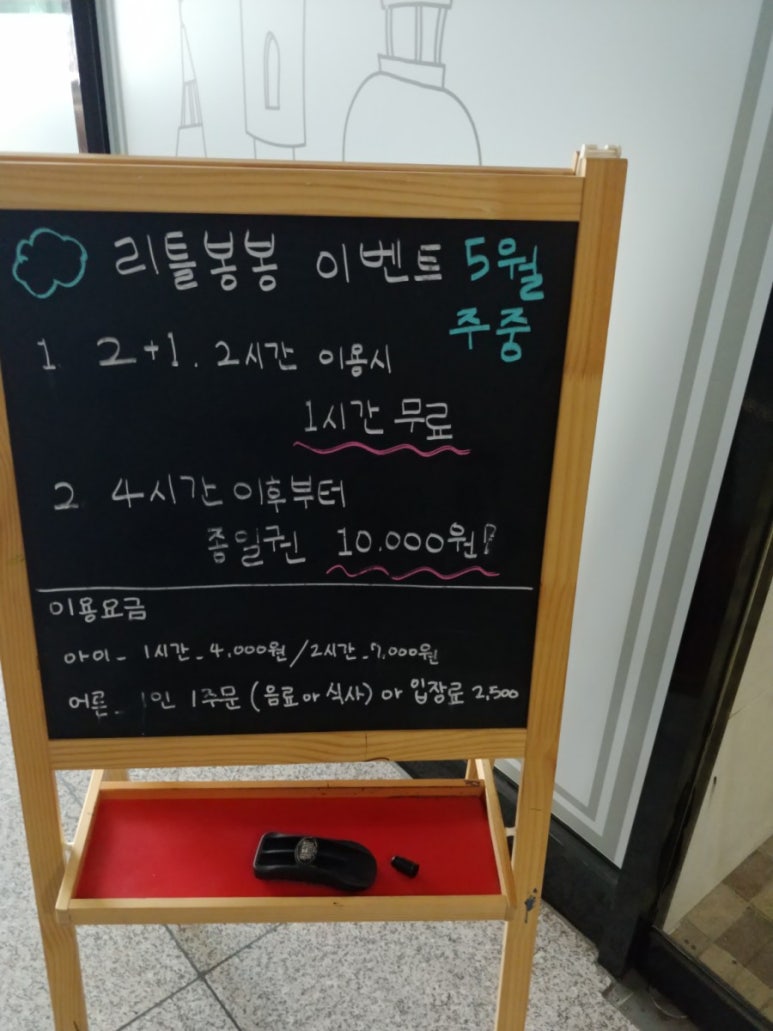 리틀봉봉 이벤트 5월
주중
1. 2+1. 2시간 이용시
1시간 무료
2 4시간 이후부터
종일권 10.000원!
이용요금
아이 - 1시간 - 4.000원 / 2시간 - 7.000원
어른 - 1인 1주문 (음료 or 식사) or 입장료 2,500